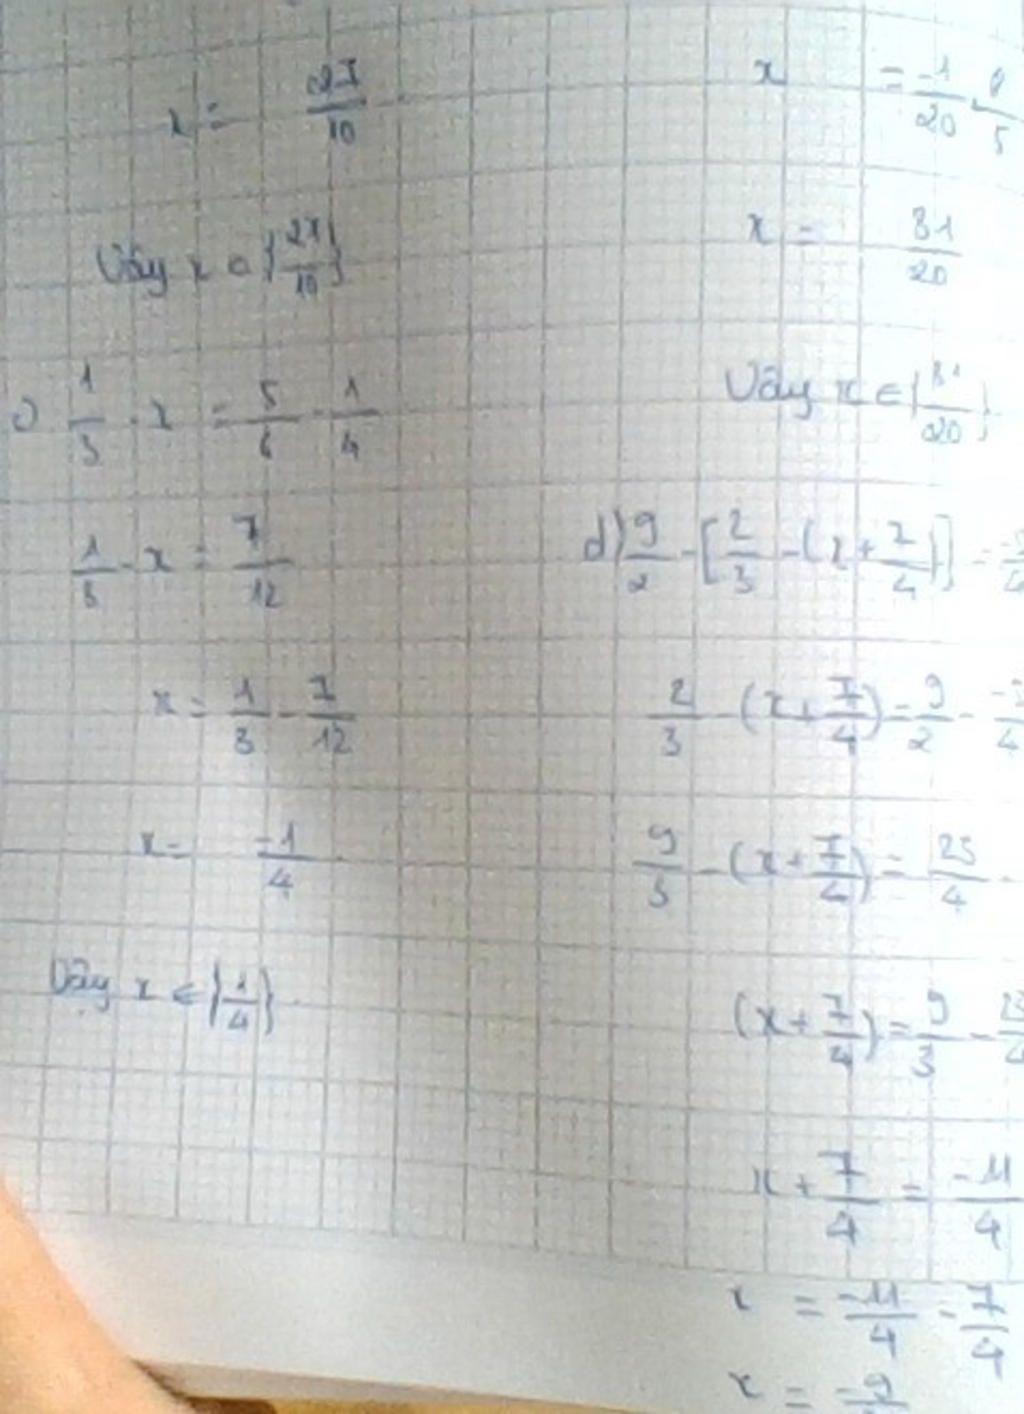 x = 27/10
Vậy x ∈ {27/10}
c) 1/3 - x = 5/6 - 1/4
1/3 - x = 7/12
x = 1/3 - 7/12
x = -1/4
Vậy x ∈ {1/4}
x = -1/20
x = 31/20
Vậy x ∈ {31/20}
d) 9/2 - [2/3 - (x + 7/4)] =
2/3 - (x + 7/4) = 9/2 -
9/3 - (x + 7/4) = 23/4
(x + 7/4) = 9/3 -
x + 7/4 = -11/4
x = -11/4 - 7/4
x = -9